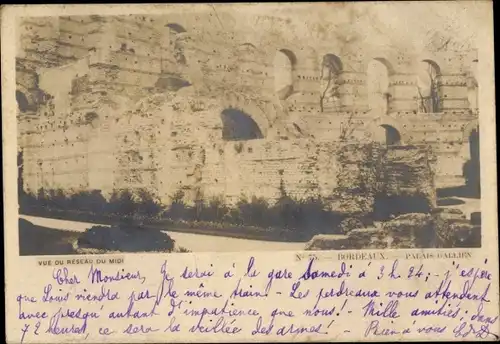 VUE DU RÉSEAU DU MIDI
BORDEAUX — PALAIS GALLIEN
Cher Monsieur, Je serai à la gare Samedi à 3h 24; j'espère
que Louis viendra par le même train - Les perdreaux vous attendent
avec presqu'autant d'impatience que nous! - Mille amitiés; dans
72 heures, ce sera la veillée des armes! - Bien à vous